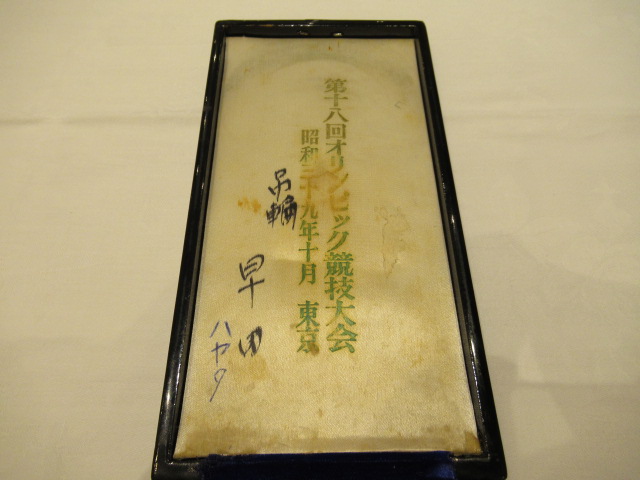 第十八回オリンピック競技大会
昭和三十九年十月　東京
吊輪
早田
ハヤタ